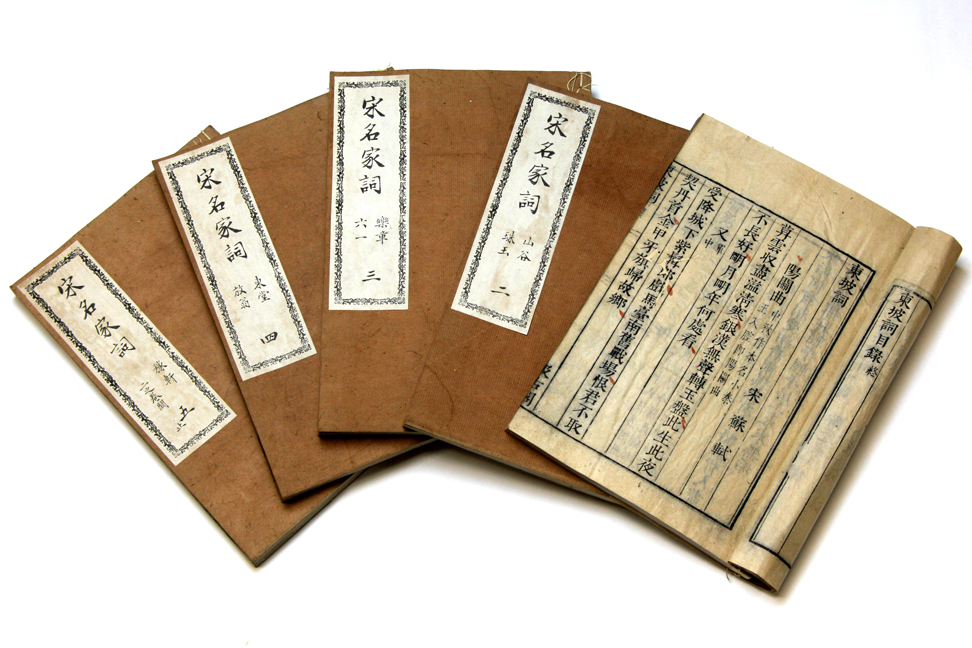 東坡詞目錄終
東坡詞
宋 蘇軾
陽關曲 中秋作本名小秦王入腔即陽關曲
暮雲收盡溢清寒銀漢無聲轉玉盤此生此夜
不長好明月明年何處看
又 軍中
受降城下紫髯郎戲馬臺南舊戰場恨君不取
契丹首金甲牙旗歸故鄉
宋名家詞
山谷
珠玉
二
宋名家詞
樂章
六一
三
宋名家詞
東堂
放翁
四
宋名家詞
稼軒
五止